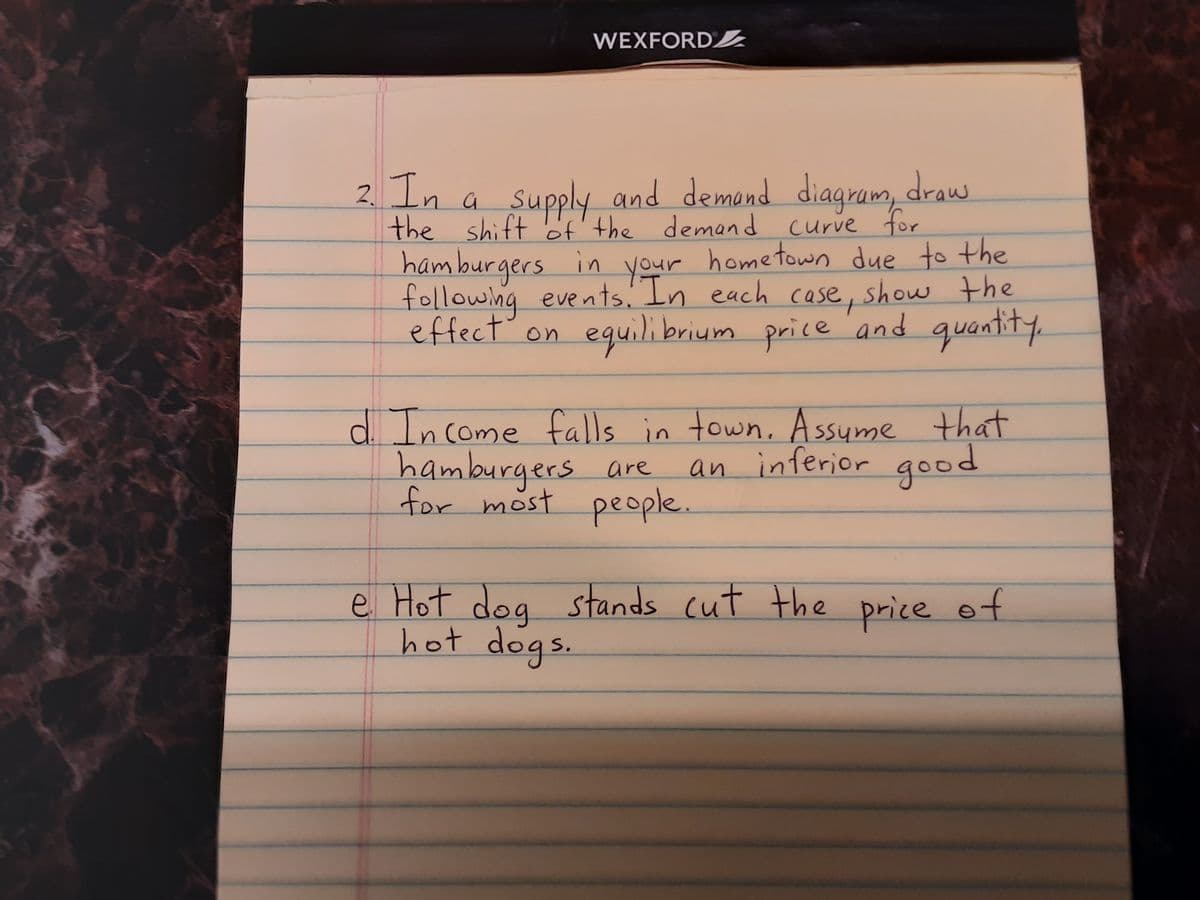 WEXFORD
2. In a supply and demand diagram, draw
the shift of the demand curve for
hamburgers in your hometown due to the
following events. In each case, show the
effect on equilibrium price and quantity.
d. Income falls in town. Assume that
hamburgers are an inferior good
for most people.
e. Hot dog stands cut the price of
hot dogs.